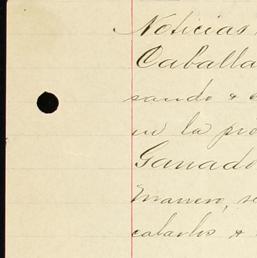 Noticias
Caballa
sando & e
en la pro
Ganado
Marrero, se
cabarlos &